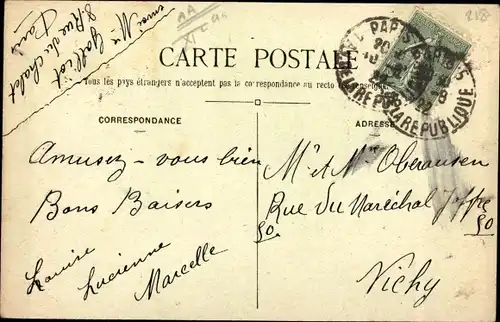 envoi Mme Galliot
8. Rue du Chalet
Paris
AA
218
CARTE POSTALE
Tous les pays étrangers n'acceptent pas la correspondance au recto
CORRESPONDANCE
ADRESSE
Amusez-vous bien
Bons Baisers
Louise
Lucienne
Marcelle
Mr et Mme Oberausen
Rue du Maréchal Joffre
50 50
Vichy
PARIS
DE LA REPUBLIQUE